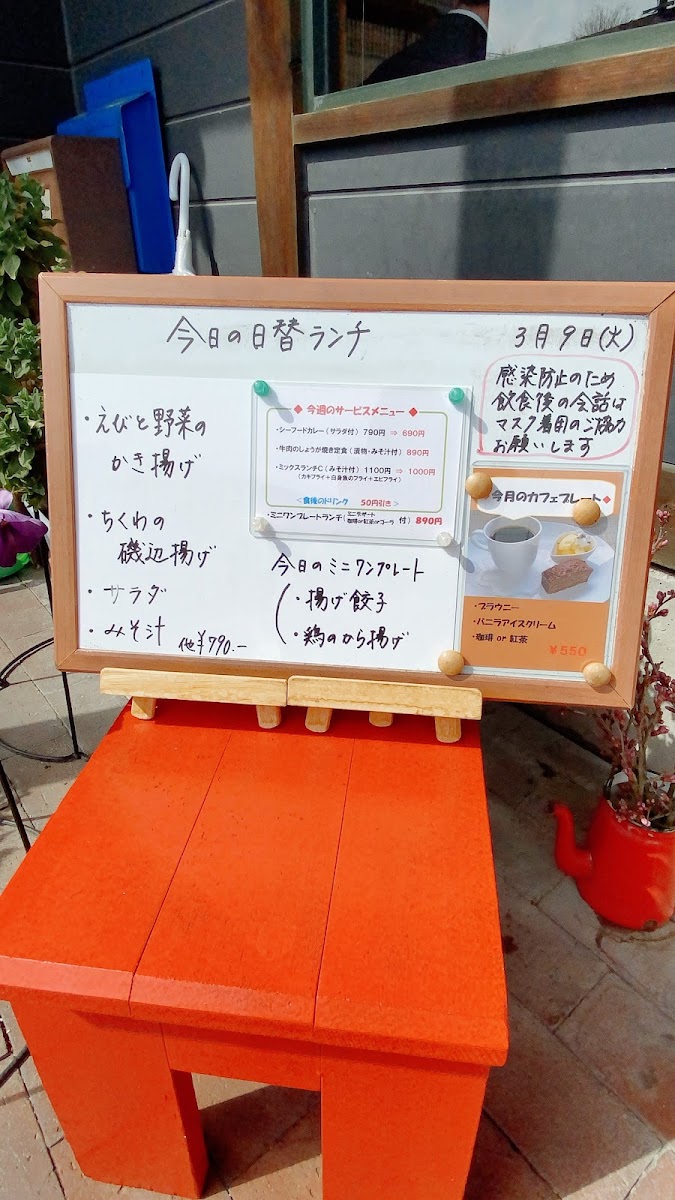 今日の日替ランチ
3月9日(火)
・えびと野菜の
かき揚げ
・ちくわの
磯辺揚げ
・サラダ
・みそ汁 他¥790.-
◆ 今週のサービスメニュー ◆
・シーフードカレー(サラダ付) 790円 ⇒ 690円
・牛肉のしょうが焼き定食(漬物・みそ汁付) 890円
・ミックスランチC(みそ汁付) 1100円 ⇒ 1000円
(カキフライ+白身魚のフライ+エビフライ)
<食後のドリンク 50円引き>
・ミニワンプレートランチ(ミニデザート
珈琲or紅茶orコーラ 付) 890円
今日のミニワンプレート
・揚げ餃子
・鶏のから揚げ
感染防止のため
飲食後の会話は
マスク着用のご協力
お願いします
今月のカフェプレート◆
・ブラウニー
・バニラアイスクリーム
・珈琲 or 紅茶
¥550